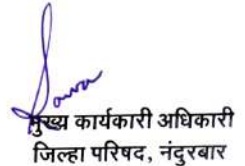 मुख्य कार्यकारी अधिकारी
जिल्हा परिषद, नंदुरबार